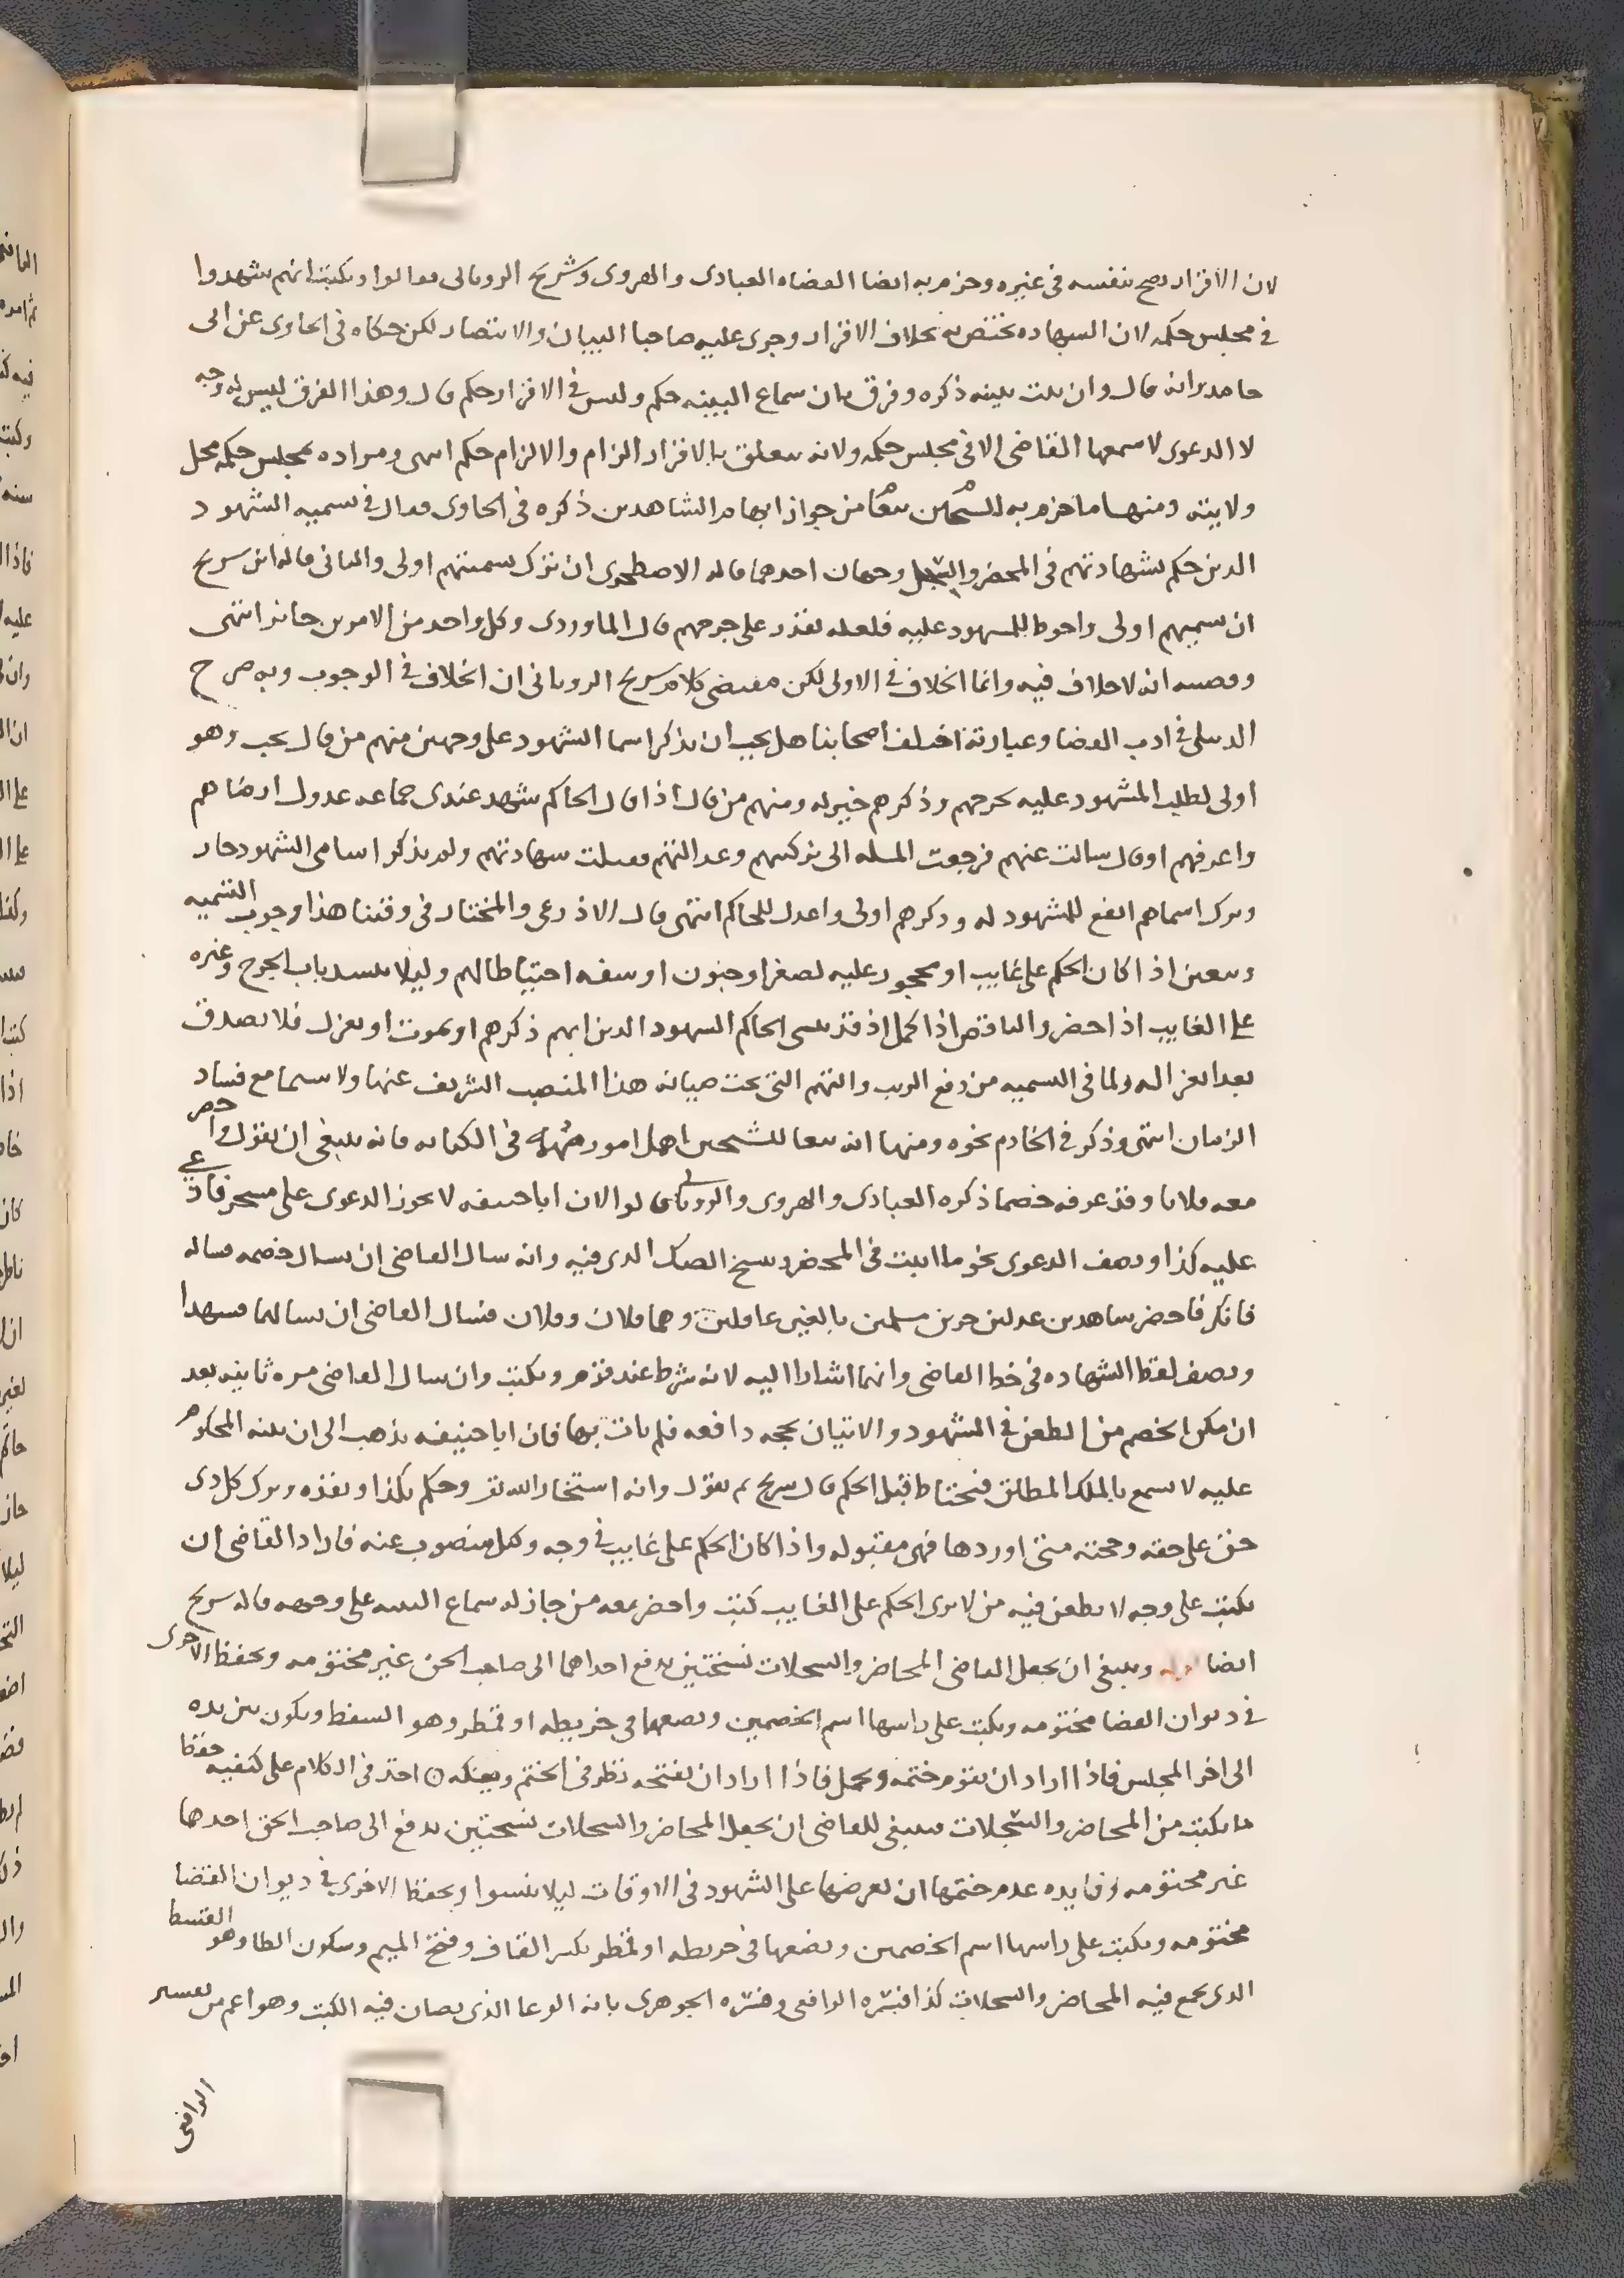 لان الاقرار يصح بنفسه في غيره وجزم به ايضا القضاه العبادى والهروى وشريح الرويانى فقالوا ويكتب انهم شهدوا
في مجلس حكمه لان الشهاده تختص به بخلاف الاقرار وجرى عليه صاحبا البيان والانتصار لكن حكاه في الحاوى عن ابى
حامد وانه قال وان ثبت ببينه ذكره وفرق بان سماع البينه حكم وليس في الاقرار حكم قال وهذا الفرق ليس له وجه
لا الدعوى لا يسمعها القاضى الا في مجلس حكمه ولانه يتعلق بالاقرار الزام والالزام حكم انتهى ومراده بمجلس حكمه محل
ولايته ومنها ما جزم به الشيخان تبعا من جواز ابهام الشاهدين ذكره في الحاوى فقال في تسميه الشهود
الذين حكم بشهادتهم في المحضر والسجل وجهان احدهما قاله الاصطخرى ان ترك تسميتهم اولى والثانى قاله ابن سريج
ان تسميتهم اولى واحوط للمشهود عليه فلعله يقدر على جرحهم قال الماوردى وكل واحد من الامرين جائز انتهى
وقضيته انه لا خلاف فيه وانما الخلاف في الاولى لكن مقتضى كلام شريح الرويانى ان الخلاف في الوجوب وبه صرح
الدبيلى في ادب القضا وعبارته اختلف اصحابنا هل يجب ان يذكر اسما الشهود على وجهين منهم من قال يجب وهو
اولى لطلب المشهود عليه بجرحهم وذكرهم خير له ومنهم من قال اذا قال الحاكم شهد عندى جماعه عدول ارضاهم
واعرفهم او قال سالت عنهم فرجعت المسله الى تزكيتهم وعدالتهم فقبلت شهادتهم ولم يذكر اسامى الشهود جاز
وترك اسماهم انفع للمشهود له وذكرهم اولى واعدل للحاكم انتهى قال الاذرعى والمختار في وقتنا هذا وجوب التسميه
ويتعين اذا كان الحكم على غايب او محجور عليه لصغر او جنون او سفه احتياطا لهم وليلا ينسد باب الجرح وغيره
على الغايب اذا حضر والناقص اذا كمل اذ قد ينسى الحاكم الشهود الذين ابهم ذكرهم او يموت او يعزل فلا يصدق
بعد انعزاله ولما في التسميه من دفع الريب والتهم التى يجب صيانه هذا المنصب الشريف عنها ولا سيما مع فساد
الزمان انتهى وذكر في الخادم نحوه ومنها انه تبعا للشيخين اهمل امور مهمه في الكتابه فانه ينبغى ان يقول واحضر
معه فلانا وقد عرفه خصما ذكره العبادى والهروى والرويانى قالوا لان ابا حنيفه لا يجوز الدعوى على مسخر فادعى
عليه كذا ويصف الدعوى نحو ما اثبت في المحضر وينسخ الصك الذى فيه وانه سال القاضى ان يسال خصمه فساله
فانكر فاحضر شاهدين عدلين حرين مسلمين بالغين عاقلين وهما فلان وفلان فسال القاضى ان يسالهما فشهدا
ويصف لفظ الشهاده في خط القاضى وانهما اشارا اليه لانه شرط عند قوم ويكتب وان سال القاضى مره ثانيه بعد
ان مكن الخصم من الطعن في الشهود والاتيان بحجه دافعه فلم يات بها فان ابا حنيفه يذهب الى ان بينه المحكوم
عليه لا تسمع بالملك المطلق فيحتاط قبل الحكم قال شريح ثم يقول وانه استخار الله تعـ وحكم بكذا ونفذه وترك كل ذى
حق على حقه وحجته متى اوردها فهى مقبوله واذا كان الحكم على غايب في وجه وكل منصوب عنه فاراد القاضى ان
يكتب على وجه لا يطعن فيه من لا يرى الحكم على الغايب كتب واحضر معه من جاز له سماع البينه على وجهه قاله شريح
ايضا وينبغى ان يجعل القاضى المحاضر والسجلات نسختين يدفع احداهما الى صاحب الحق غير مختومه ويحفظ الاخرى
في ديوان القضا مختومه ويكتب على راسها اسم الخصمين ويضعها في خريطه او قمطر وهو السفط ويكون بين يديه
الى اخر المجلس فاذا اراد ان يقوم ختمه ويحمل فاذا اراد ان يفتحه نظر في الختم ويفكه اخذ في الكلام على كيفيه حفظ
ما يكتب من المحاضر والسجلات فينبغى للقاضى ان يجعل المحاضر والسجلات نسختين يدفع الى صاحب الحق احدهما
غير مختومه وفايده عدم ختمها ان يعرضها على الشهود في الاوقات ليلا ينسوا ويحفظ الاخرى في ديوان القضا
مختومه ويكتب على راسها اسم الخصمين ويضعها في خريطه او قمطر بكسر القاف وفتح الميم وسكون الطا وهو السفط
الذى يجمع فيه المحاضر والسجلات كذا فسره الرافعى وفسره الجوهرى بانه الوعا الذى يصان فيه الكتب وهو اعم من تفسير
الرافعى